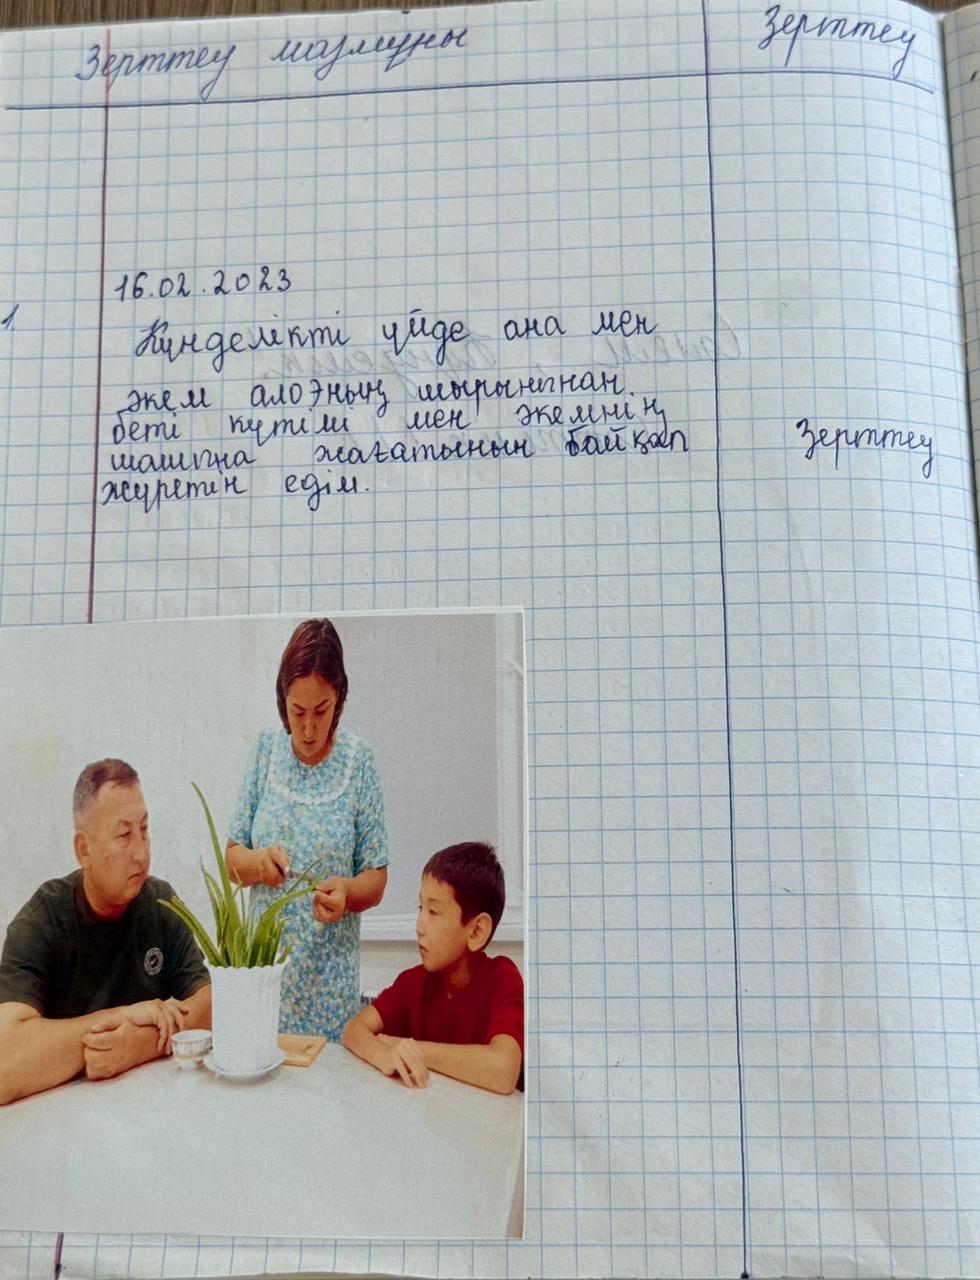 Зерттеу мазмұны
Зерттеу
16.02.2023
1.
Күнделікті үйде ана мен
әкем алоэның шырынынан
беті күтімі мен әкемнің
шашына жағатынын байқап
жүретін едім.
Зерттеу